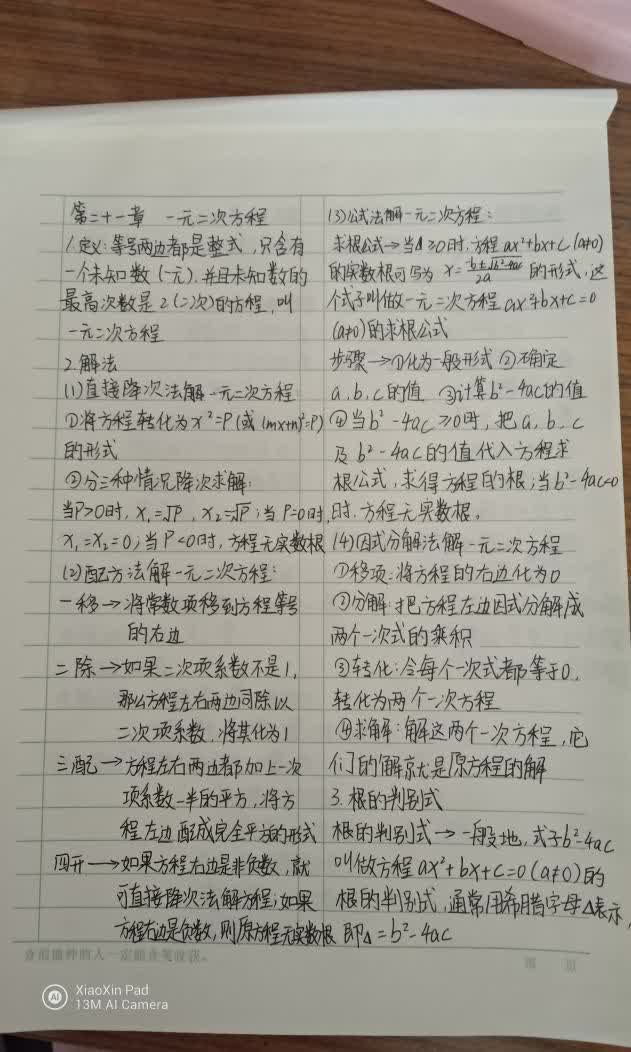 第二十一章 一元二次方程
1.定义:等号两边都是整式,只含有
一个未知数(一元),并且未知数的
最高次数是2(二次)的方程,叫
一元二次方程
2.解法
(1)直接降次法解一元二次方程
①将方程转化为x²=P(或(mx+n)²=P)
的形式
②分三种情况降次求解:
当P>0时,x₁=√P,x₂=-√P;当P=0时,
x₁=x₂=0;当P<0时,方程无实数根
(2)配方法解一元二次方程:
一移→将常数项移到方程等号
的右边
二除→如果二次项系数不是1,
那么方程左右两边同除以
二次项系数,将其化为1
三配→方程左右两边都加上一次
项系数一半的平方,将方
程左边配成完全平方的形式
四开→如果方程右边是非负数,就
可直接降次法解方程;如果
方程右边是负数,则原方程无实数根
(3)公式法解一元二次方程:
求根公式→当Δ≥0时,方程ax²+bx+c(a≠0)
的实数根可写为x=-b±√b²-4ac/2a的形式,这
个式子叫做一元二次方程ax²+bx+c=0
(a≠0)的求根公式
步骤→①化为一般形式②确定
a,b,c的值 ③计算b²-4ac的值
④当b²-4ac≥0时,把a,b,c
及b²-4ac的值代入方程求
根公式,求得方程的根;当b²-4ac<0
时,方程无实数根。
(4)因式分解法解一元二次方程
①移项:将方程的右边化为0
②分解:把方程左边因式分解成
两个一次式的乘积
③转化:令每个一次式都等于0,
转化为两个一次方程
④求解:解这两个一次方程,它
们的解就是原方程的解
3.根的判别式
根的判别式→一般地,式子b²-4ac
叫做方程ax²+bx+c=0(a≠0)的
根的判别式,通常用希腊字母Δ表示,
即Δ=b²-4ac
含泪播种的人一定能含笑收获。
XiaoXin Pad
13M AI Camera
AI